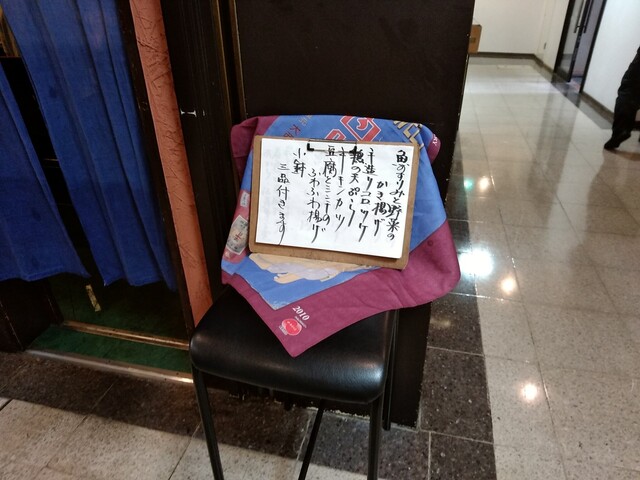 魚のすりみと野菜の
かき揚げ
手造りコロッケ
鶏の天ぷら
チキンカツ
豆腐とミンチの
ふわふわ揚げ
小鉢
三品付きます
2010